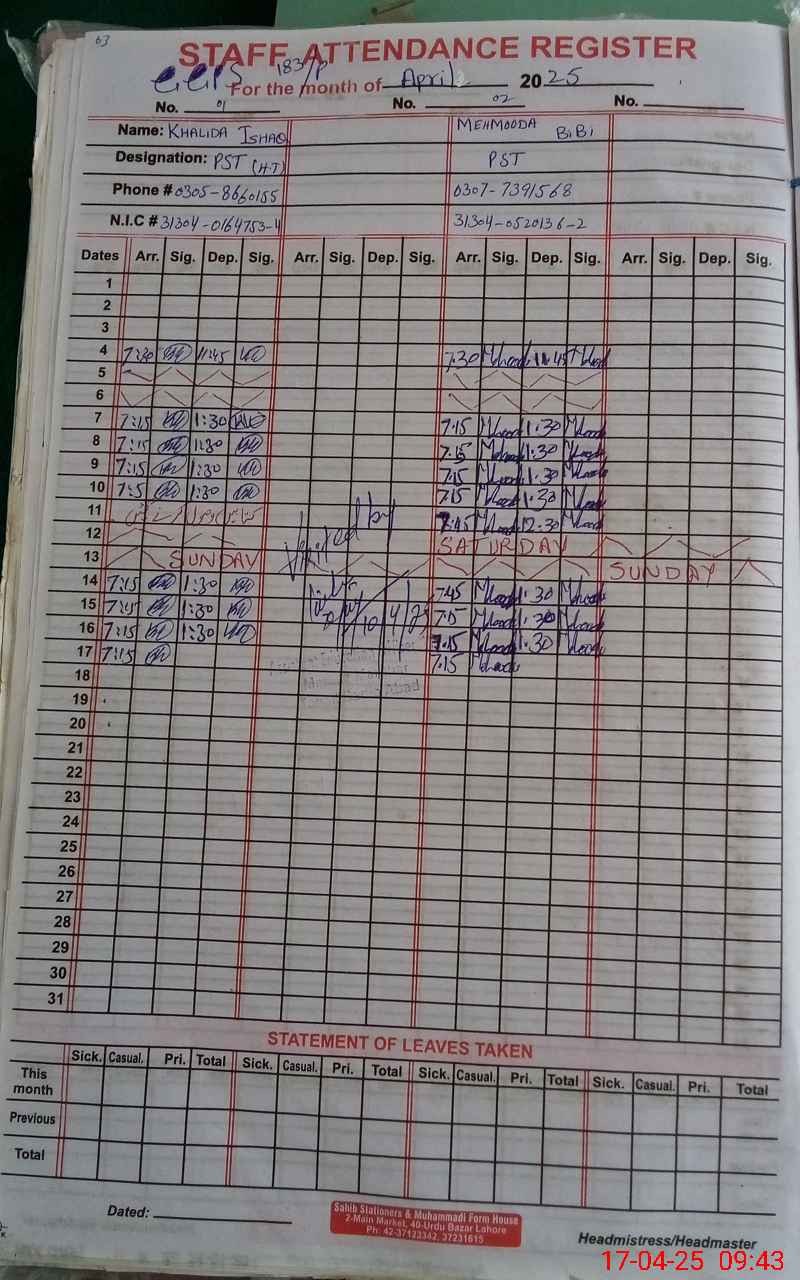 63
STAFF ATTENDANCE REGISTER
183/P
For the month of April 2025
No. 01 No. 02 No.
Name: KHALIDA ISHAQ MEHMOODA BIBI
Designation: PST (H.T) PST
Phone # 0305-8660155 0307-7391568
N.I.C # 31304-0164753-4 31304-0520136-2
Dates Arr. Sig. Dep. Sig. Arr. Sig. Dep. Sig. Arr. Sig. Dep. Sig. Arr. Sig. Dep. Sig.
1
2
3
4 7:30 11:45 7:30 11:45
5
6
7 7:15 1:30 7:15 1:30
8 7:15 1:30 7:15 1:30
9 7:15 1:30 7:15 1:30
10 7:15 1:30 7:15 1:30
11 12:30
12 SATURDAY
13 SUNDAY SUNDAY
14 7:15 1:30 7:45 1:30
15 7:15 1:30 7:15 1:30
16 7:15 1:30 7:15 1:30
17 7:15 7:15
Visited by
10/4/25
18
19
20
21
22
23
24
25
26
27
28
29
30
31
STATEMENT OF LEAVES TAKEN
Sick. Casual. Pri. Total Sick. Casual. Pri. Total Sick. Casual. Pri. Total Sick. Casual. Pri. Total
This month
Previous
Total
Dated:
Sahib Stationers & Muhammadi Form House
2-Main Market, 40-Urdu Bazar Lahore
Ph: 42-37123342, 37231615
Headmistress/Headmaster
17-04-25 09:43